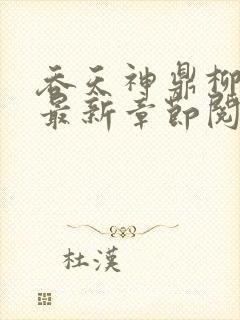 吞天神鼎柳
最新章節閱
杜漢